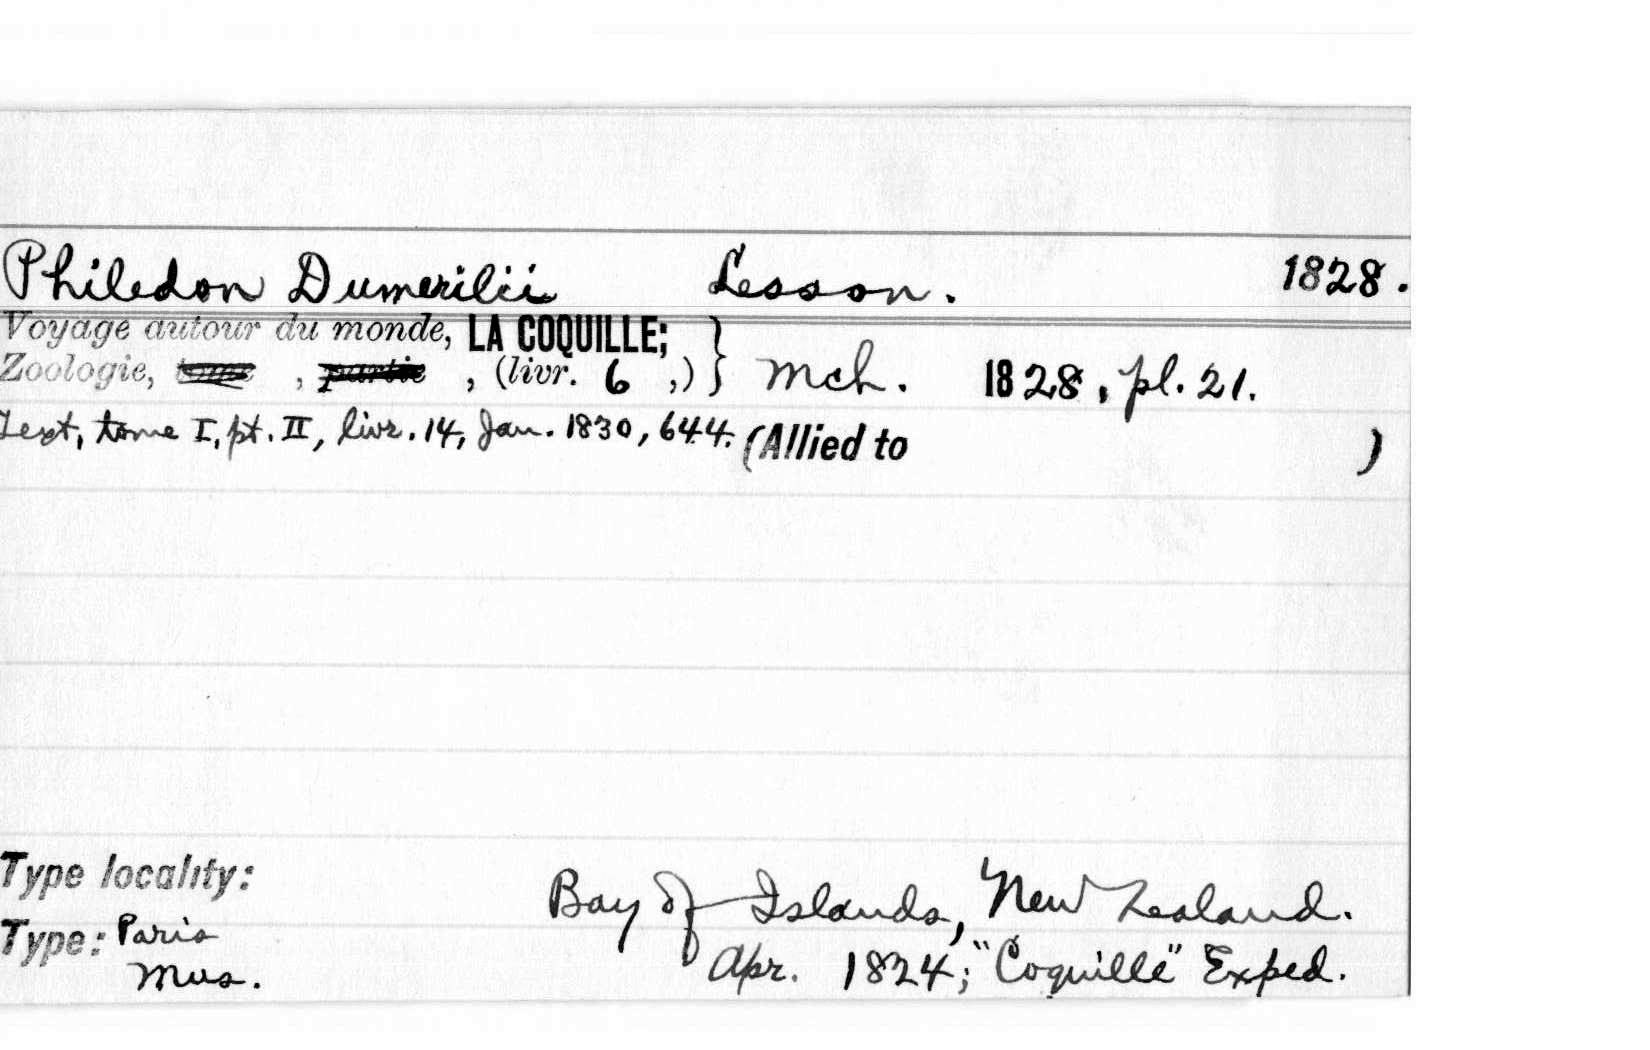 Philedon Dumerilii Lesson. 1828.
Voyage autour du monde, LA COQUILLE; }
Zoologie, tome , partie , (livr. 6 ,) } Mch. 1828, pl. 21.
Text, tome I, pt. II, livr. 14, Jan. 1830, 644. (Allied to )
Type locality: Bay of Islands, New Zealand.
Type: Paris Mus. Apr. 1824; "Coquille" Exped.